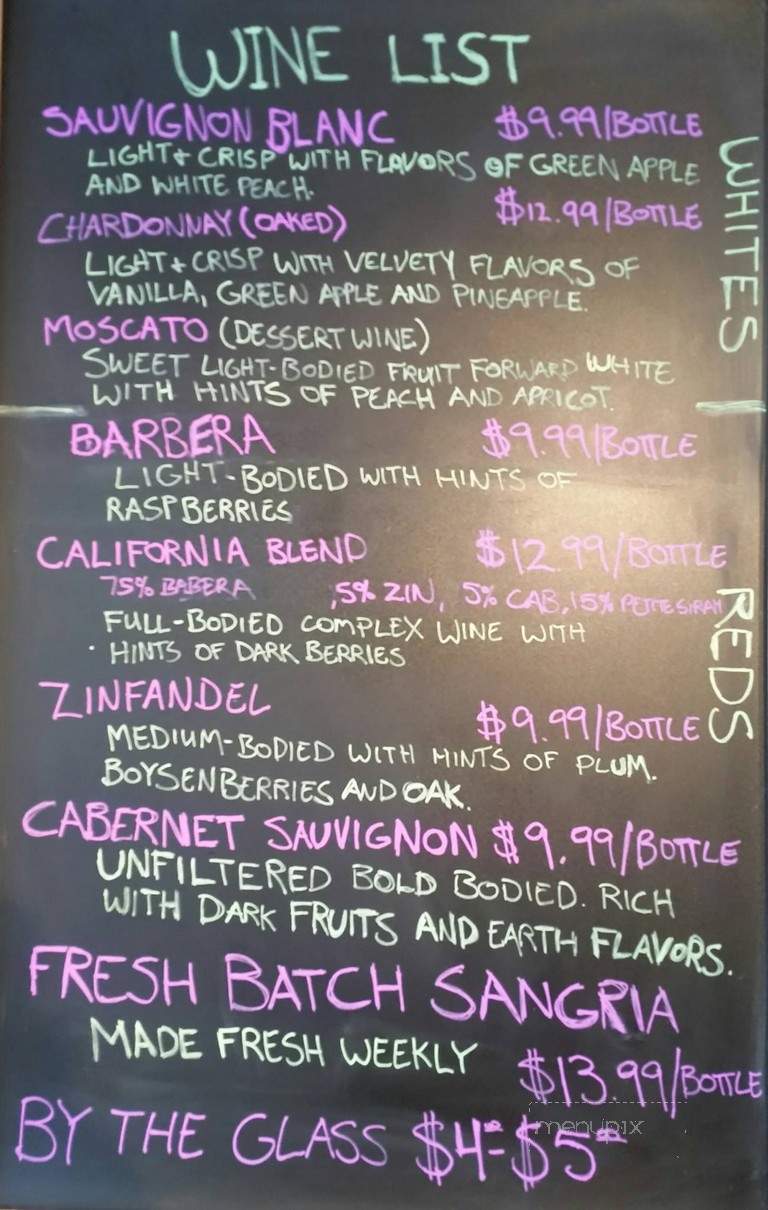 WINE LIST
SAUVIGNON BLANC $9.99/BOTTLE
LIGHT + CRISP WITH FLAVORS OF GREEN APPLE
AND WHITE PEACH.
CHARDONNAY (OAKED) $12.99/BOTTLE
LIGHT + CRISP WITH VELVETY FLAVORS OF
VANILLA, GREEN APPLE AND PINEAPPLE.
MOSCATO (DESSERT WINE)
SWEET LIGHT-BODIED FRUIT FORWARD WHITE
WITH HINTS OF PEACH AND APRICOT.
WHITES
BARBERA $9.99/BOTTLE
LIGHT-BODIED WITH HINTS OF
RASPBERRIES
CALIFORNIA BLEND $12.99/BOTTLE
75% BABERA ,5% ZIN, 5% CAB, 15% PETITE SIRAH
FULL-BODIED COMPLEX WINE WITH
HINTS OF DARK BERRIES
ZINFANDEL $9.99/BOTTLE
MEDIUM-BODIED WITH HINTS OF PLUM.
BOYSENBERRIES AND OAK.
CABERNET SAUVIGNON $9.99/BOTTLE
UNFILTERED BOLD BODIED. RICH
WITH DARK FRUITS AND EARTH FLAVORS.
REDS
FRESH BATCH SANGRIA
MADE FRESH WEEKLY $13.99/BOTTLE
BY THE GLASS $4-$5
menupix